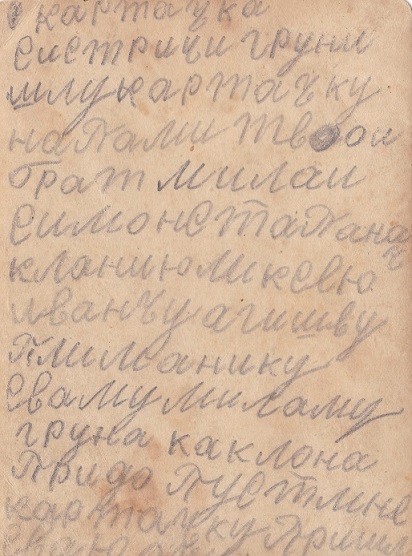 картачка
систричи груни
шлу картачку
на пами твоои
брат милаи
симон стапанач
кланию ликсевю
иванчу агишву
плимянику
сваму миламу
груна каклона
придо пустмне
картачку пришл